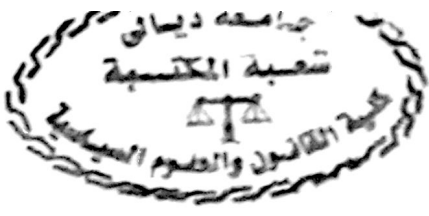 جامعة ديالى
شعبة المكتبة
كلية القانون والعلوم السياسية